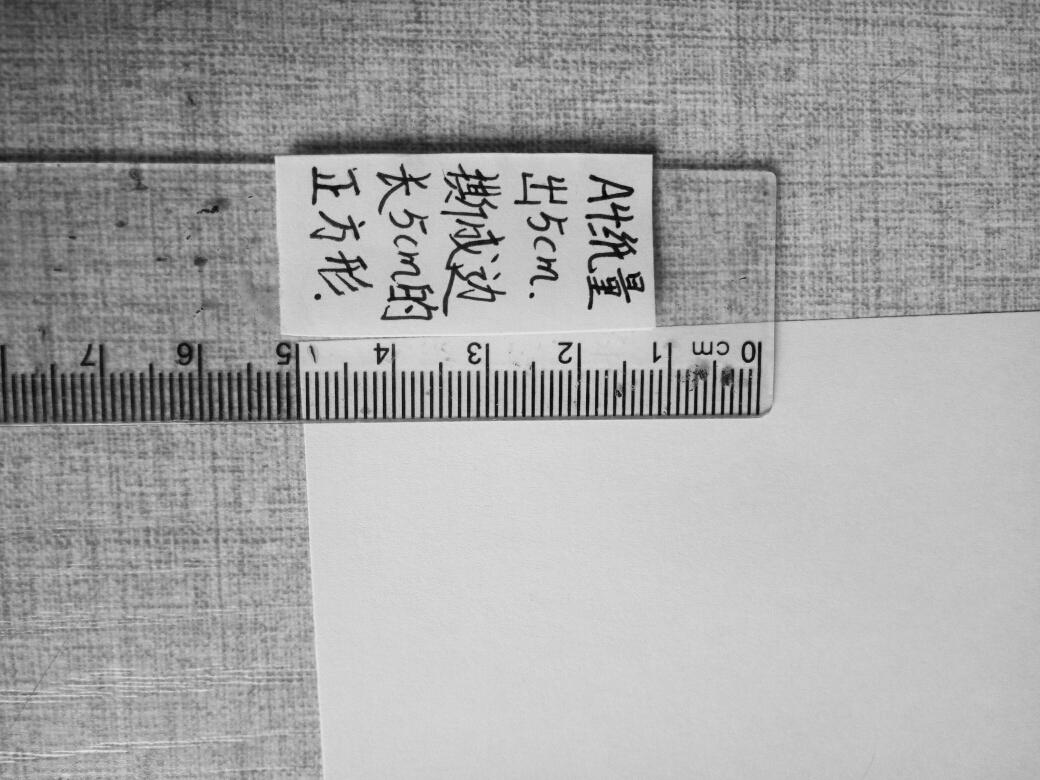 A4纸量
出5cm.
撕成边
长5cm的
正方形.
7 6 5 4 3 2 1 cm 0